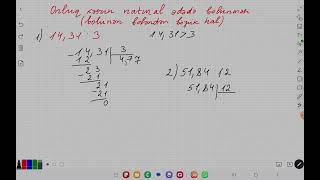 Onluq kəsrin natural ədədə bölünməsi
(bölünən böləndən böyük hal)
1) 14,31 : 3     14,31 > 3
-14,31 | 3
12 | 4,77
23
-21
21
-21
0
2) 51,84 12
51,84 | 12